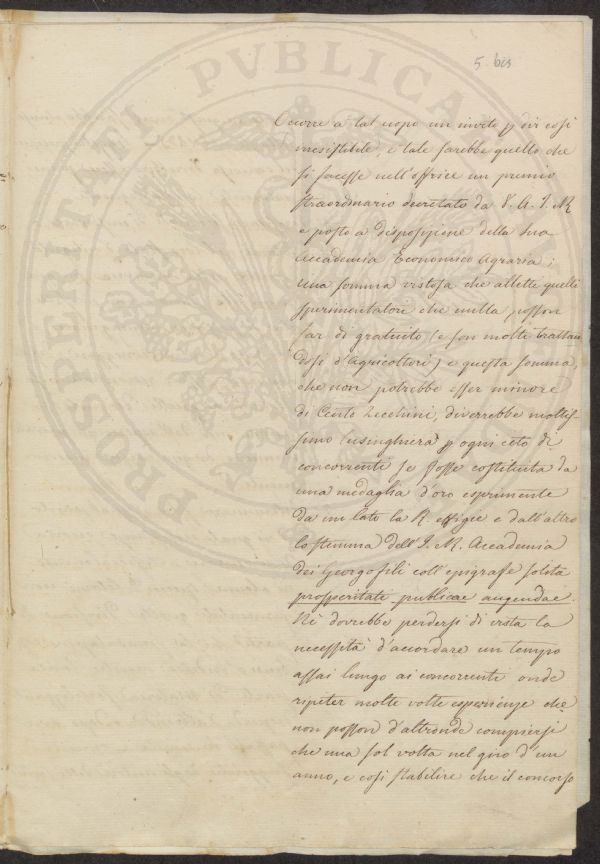 5 bis
Occorre a tal uopo un invito p dir così
irresistibile, e tale sarebbe quello che
si facesse nell'offrire un premio
straordinario decretato da V. A. I. R
e posto a disposizione della sua
Accademia Economico Agraria;
una somma vistosa che allette quelli
sperimentatori che nulla posson
far di gratuito (e son molti trattan
dosi d'Agricoltori) e questa somma,
che non potrebbe esser minore
di Cento Zecchini, diverrebbe moltis-
simo lusinghiera p ogni ceto di
concorrenti se fosse costituita da
una medaglia d'oro esprimente
da un lato la R. effigie e dall'altro
lo stemma dell'I. R. Accademia
dei Georgofili coll'epigrafe solita
prosperitate publicae augendae.
Nè dovrebbe perdersi di vista la
necessità d'accordare un tempo
assai lungo ai concorrenti onde
ripeter molte volte esperienze che
non posson d'altronde compiersi
che una sol volta nel giro d'un
anno, e così stabilire che il concorso
PROSPERITATI PVBLICA